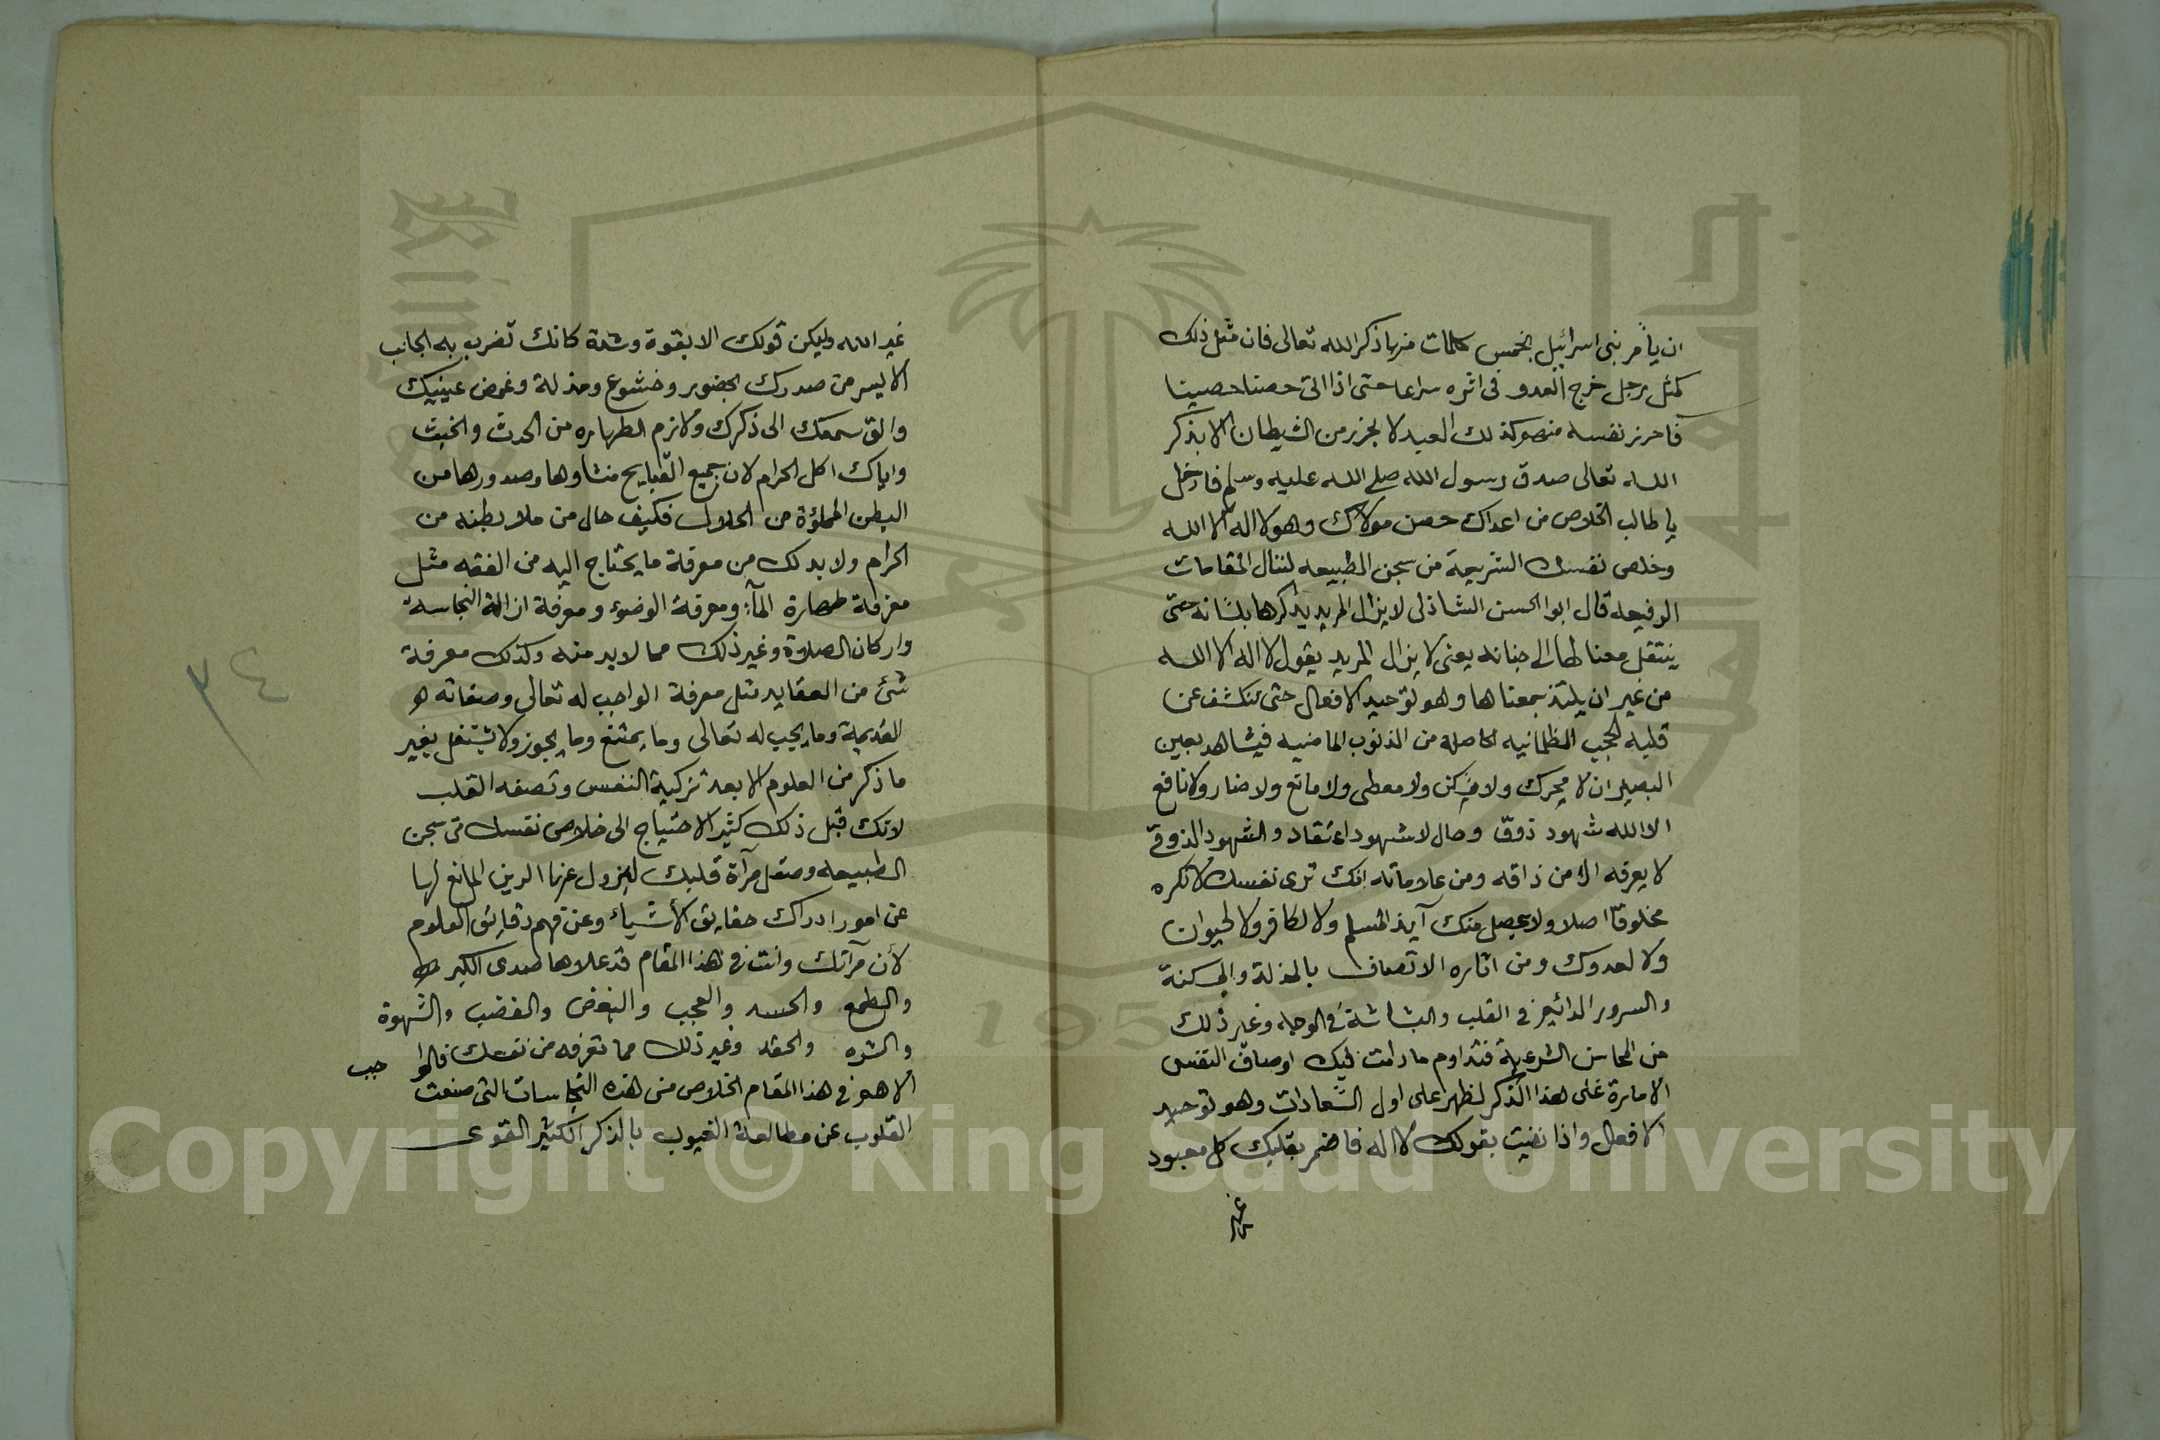 ان يأمر بني اسرائيل بخمس كلمات منها ذكر الله تعالى فان مثل ذلك
كمثل رجل خرج العدو في اثره سراعا حتى اذا اتى حصنا حصينا
فاحرز نفسه منهم وكذلك العبد لا يحرز من الشيطان الا بذكر
الله تعالى صدق رسول الله صلى الله عليه وسلم فادخل
يا طالب الخلاص من اعداك حصن مولاك وهو لا اله الا الله
وخلص نفسك الشريحة من سجن الطبيعه لتنال المقامات
الرفيعه قال ابو الحسن الشاذلي لا يزال المريد يذكرها بلسانه حتى
ينتقل معناها الى جنانه يعني لا يزال المريد يقول لا اله الا الله
من غير ان يلتذ بمعناها وهو توحيد الافعال حتى تنكشف عن
قلبه الحجب الظلمانيه الحاصلة من الذنوب الماضيه فيشاهد بعين
البصير ان لا محرك ولا مسكن ولا معطى ولا مانع ولا ضار ولا نافع
الا الله شهود ذوق وحال لا شهود اعتقاد والشهود الذوقي
لا يعرفه الا من ذاقه ومن علاماته انك ترى نفسك لا تكره
مخلوقا اصلا ولا يحصل منك آيذ المسلم ولا لكافر ولا لحيوان
ولا لعدوك ومن اثاره الاتصاف بالمذلة والمسكنة
والسرور الدائم في القلب والبشاشة في الوجه وغير ذلك
من المحاسن الشرعية فتداوم ما دامت فيك اوصاف النفس
الامارة على هذا الذكر لظهر على اول الشعادات وهو توحيد
الافعال واذا نفيت بقولك لا اله فاضمر بقلبك كل معبود
غير
غير الله وليكن قولك الا بقوة وشدة كانك تضرب به الجانب
الايسر من صدرك بحضور وخشوع ومذلة وغمض عينيك
والق سمعك الى ذكرك ولازم الطهاره من الحدث والخبث
واياك اكل الحرام لان جميع القبايح منشاوها وصدورها من
البطن المملؤة من الحلال فكيف حال من ملا بطنه من
الحرام ولا بد لك من معرفة ما يحتاج اليه من الفقه مثل
معرفة طهارة المآء ومعرفة الوضوء ومعرفة ازالة النجاسة
واركان الصلاة وغير ذلك مما لابد منه وكذلك معرفة
شئ من العقايد مثل معرفة الواجب له تعالى وصفاته
القديمة وما يجب له تعالى وما يمتنع وما يجوز ولا تشتغل بغير
ما ذكر من العلوم الا بعد تزكية النفس وتصفه القلب
لانك قبل ذلك كثير الاحتياج الى خلاص نفسك من سجن
الطبيعه وصقل مرآة قلبك ليزول عنها الرين المانع لها
عن امور ادراك حقايق الأشياء وعن فهم دقايق العلوم
لأن مرآتك وانت في هذا المقام قد علاها صدى الكبر
والطمع والحسد والعجب والبغض والغضب والشهوة
والشره والحقد وغير ذلك مما تعرفه من نفسك فالواجب
الاهم في هذا المقام الخلاص من هذه النجاسات التي منعت
القلوب عن مطالعة الغيوب بالذكر الكثير القوى
٣٤
Copyright © King Saud University